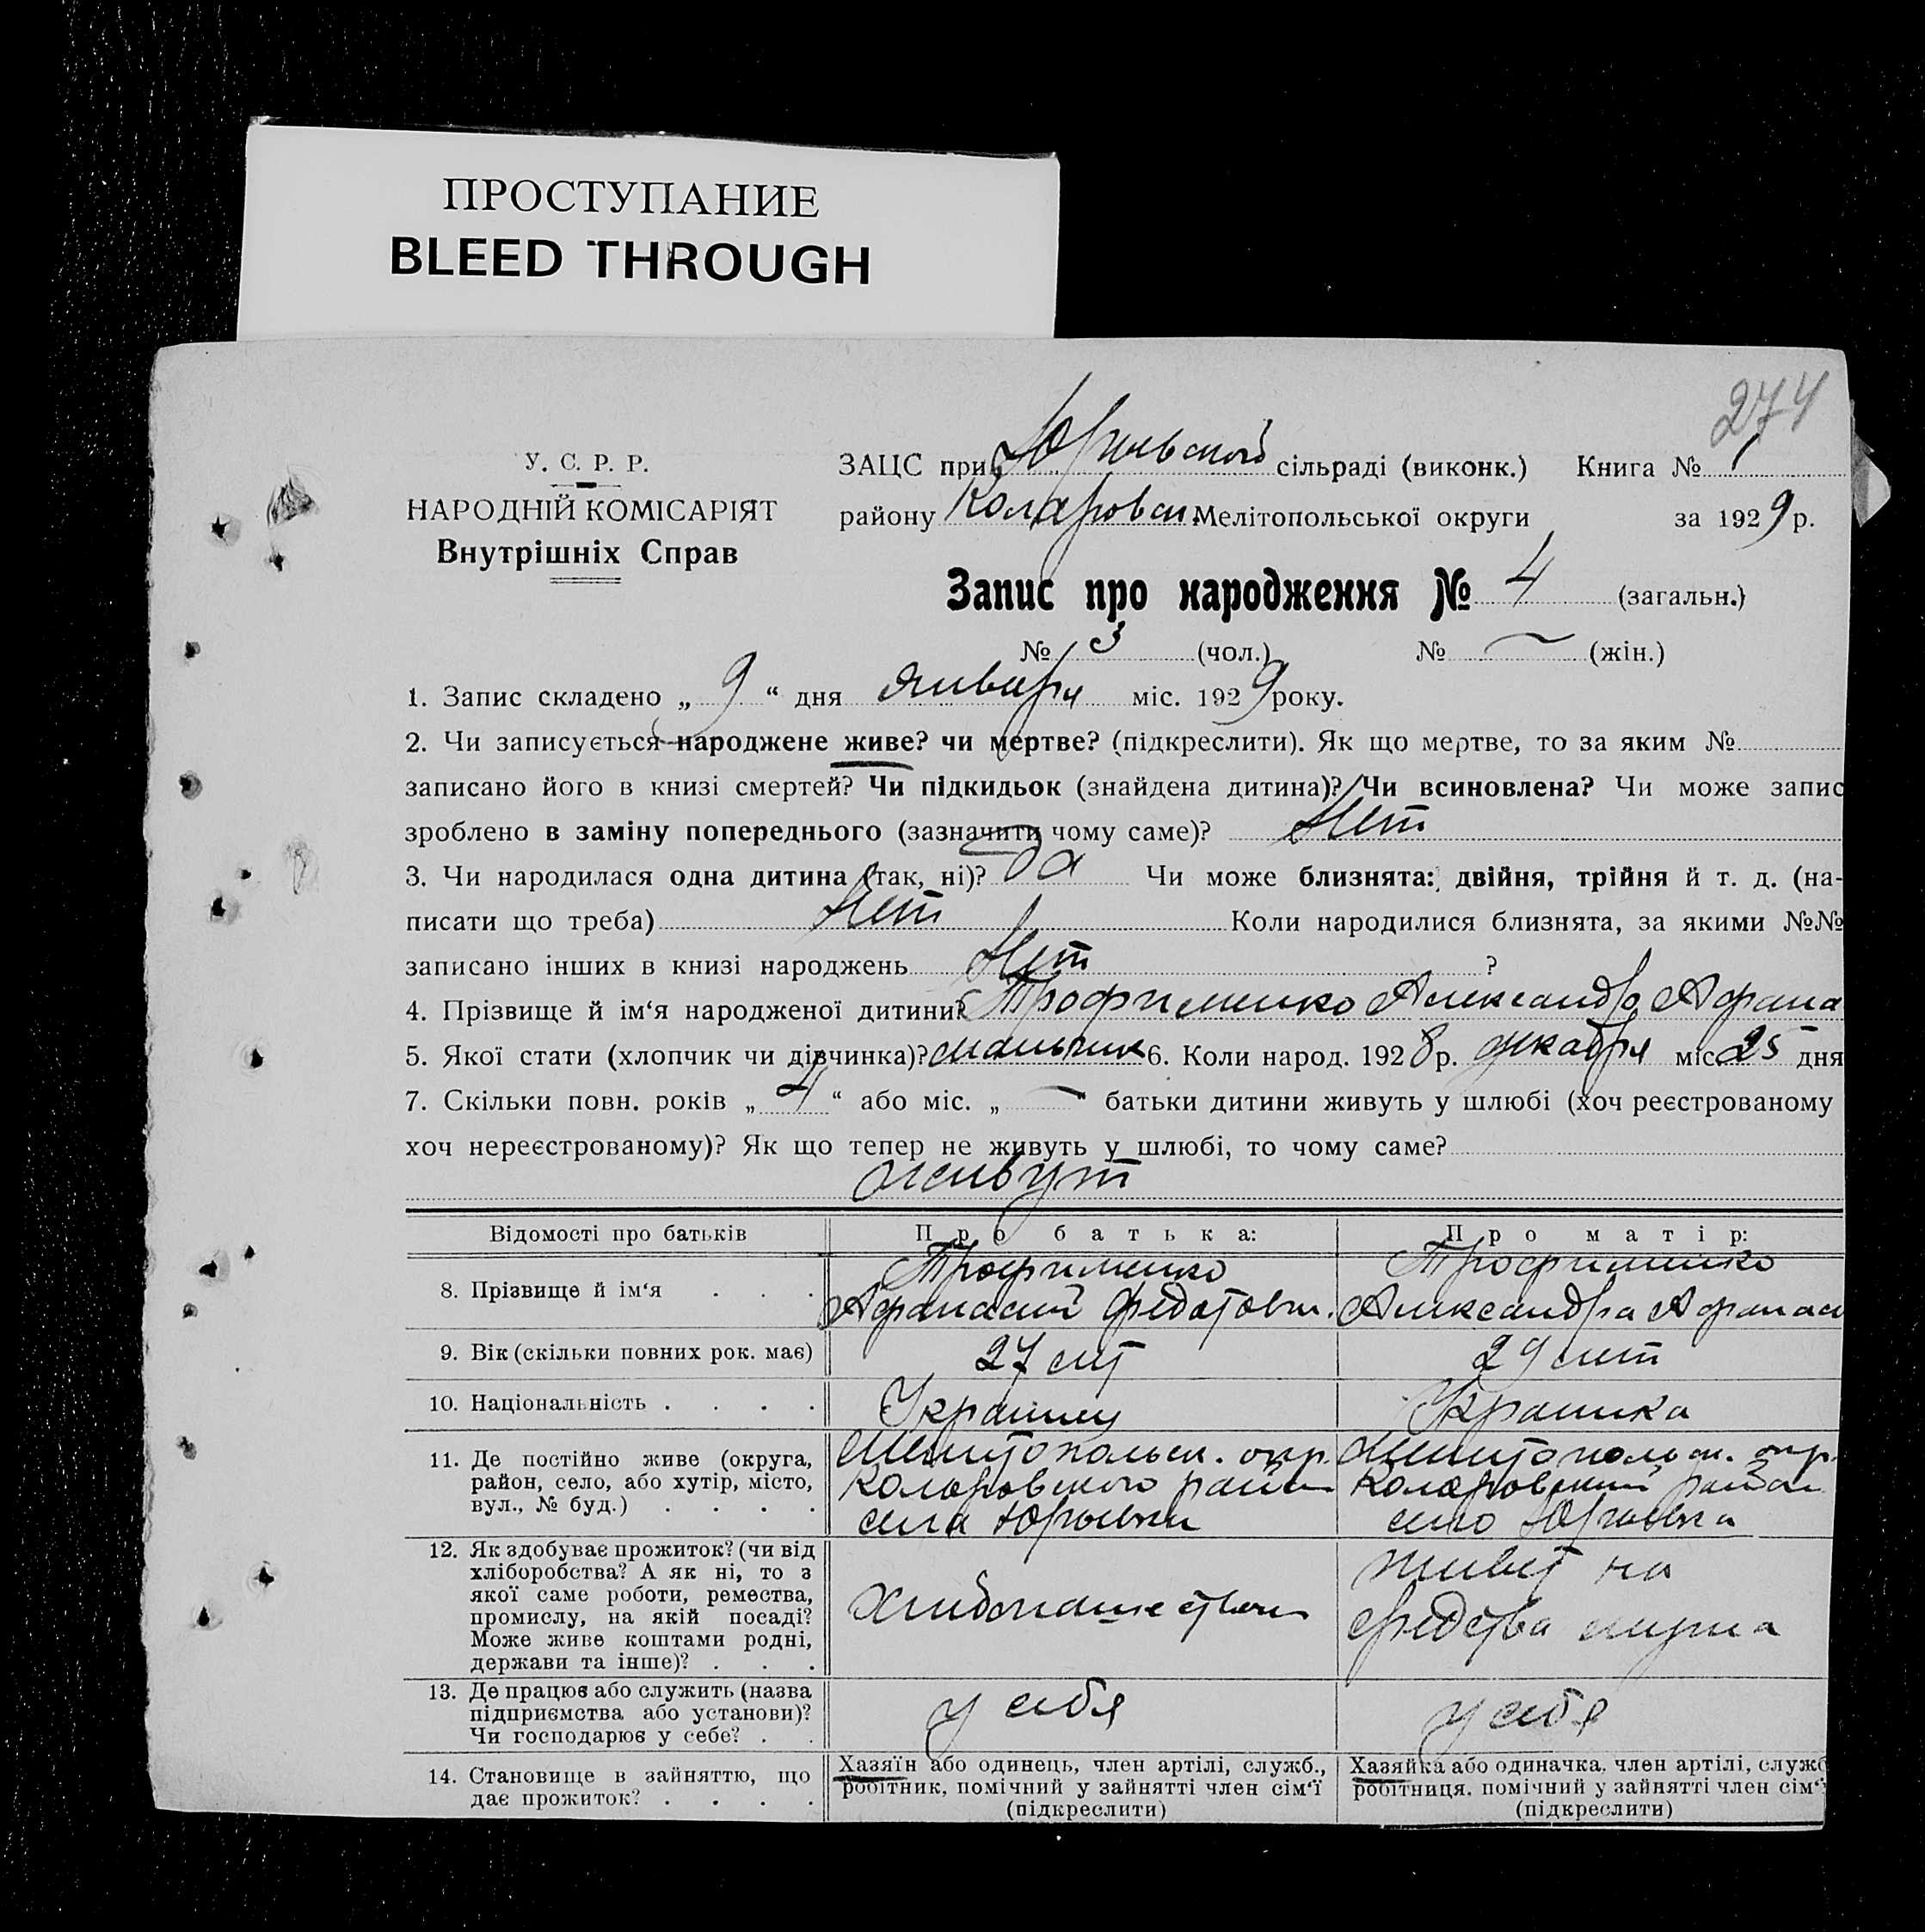 ПРОСТУПАНИЕ
BLEED THROUGH
274
У. С. Р. Р.
НАРОДНІЙ КОМІСАРІЯТ
Внутрішніх Справ
ЗАЦС при Юрьевской сільраді (виконк.) Книга № 1
району Коларовск. Мелітопольської округи за 1929 р.
Запис про народження № 4 (загальн.)
№ 3 (чол.) № — (жін.)
1. Запис складено „ 9 “ дня января міс. 1929 року.
2. Чи записується народжене живе? чи мертве? (підкреслити). Як що мертве, то за яким №
записано його в книзі смертей? Чи підкидьок (знайдена дитина)? Чи всиновлена? Чи може запис
зроблено в заміну попереднього (зазначити чому саме)? Нет
3. Чи народилася одна дитина (так, ні)? да Чи може близнята: двійня, трійня й т. д. (на-
писати що треба) Нет Коли народилися близнята, за якими №№
записано інших в книзі народжень Нет ?
4. Прізвище й ім‘я народженої дитини? Трофименко Александр Афана
5. Якої стати (хлопчик чи дівчинка)? мальчик 6. Коли народ. 1928 р. декабря міс. 25 дня
7. Скільки повн. років „ 4 “ або міс. „ — “ батьки дитини живуть у шлюбі (хоч реєстрованому
хоч нереєстрованому)? Як що тепер не живуть у шлюбі, то чому саме?
живут
Відомості про батьків Про батька: Про матір:
8. Прізвище й ім‘я . . . Трофименко
Афанасий Федотович.
Трофименко
Александра Афанас
9. Вік (скільки повних рок. має) 27 лет 29 лет
10. Національність . . . . Украинец Украинка
11. Де постійно живе (округа,
район, село, або хутір, місто,
вул., № буд.) . . . .
Мелитопольск. окр.
Коларовского район
села Юрьевки
Мелитопольск. окр.
Коларовский район
село Юрьевка
12. Як здобуває прожиток? (чи від
хліборобства? А як ні, то з
якої саме роботи, ремества,
промислу, на якій посаді?
Може живе коштами родні,
держави та інше)? . . .
Хлебопашеством
живет на
средства мужа
13. Де працює або служить (назва
підприємства або установи)?
Чи господарює у себе? . .
у себя
у себя
14. Становище в зайняттю, що
дає прожиток? . . . .
Хазяїн або одинець, член артілі, служб.,
робітник, помічний у зайнятті член сім‘ї
(підкреслити)
Хазяйка або одиначка, член артілі, служб
робітниця, помічний у зайнятті член сім‘ї
(підкреслити)